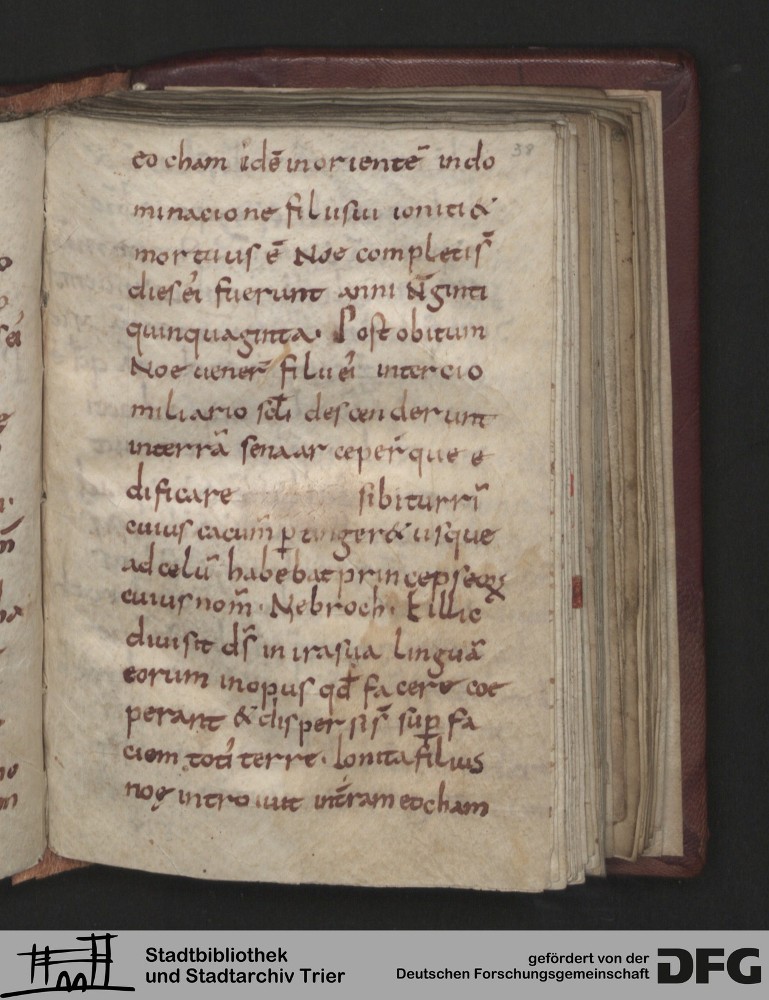 38
eo cham idē in oriente᷑ in do
minacione filii sui ioniti &
mortuus ē Noe completis̄
dies ei᷑ fuerunt anni Ñginti
quinquaginta. Post obitum
Noe uener̄ filii ei᷑ in tercio
miliario scłi descenderunt
in terrā senaar ceper̄que e
dificare sibi turrī
cuius cacum̄ ꝑtinger& usque
ad celū habebat princeps eoꝝ
cuius nom̄. Nebroch. Et illic
diuisit ds̄ in ira sua linguā
eorum in opus qđ facere coe
perant & dispersi s̄ suꝑ fa
ciem toti᷑ terre. Ionita filius
noę introiuit in t̄ram eocham
Stadtbibliothek
und Stadtarchiv Trier
gefördert von der
Deutschen Forschungsgemeinschaft
DFG